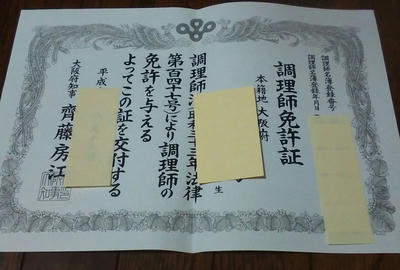 調理師免許証
調理師名簿登録番号
調理師名簿登録年月日
本籍地 大阪府
生
調理師法(昭和三十三年法律
第百四十七号)により調理師の
免許を与える
よってこの証を交付する
平成
大阪府知事 齊藤房江